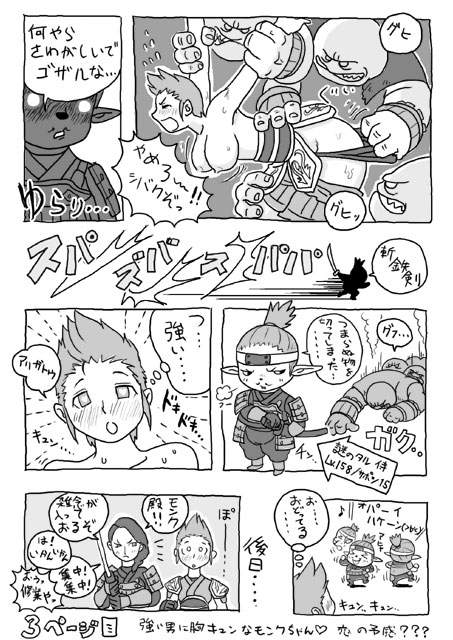 何やら
さわがしいで
ゴザルな…
ゆらり…
グヒ
やめろ〜!!
シバくぞっ
グヒッ
スパ
ズバ
ズ
パパ
斬
鉄
剣
つ…
強い…
アリガトゥ
ドキドキッ
キュン…
つまらぬ物を
切ってしまった…
グフ…
ガク。
チン、
謎のタル 体
Lv.158/サポシ15
雑念が
入って
おるぞ
モンク
殿!!
ぽ〜
集中!
集中!
後日……
お…
おどってる
オパーイ
ハケーン
キュン、キュン…
3ページ目
強い男に胸キュンなモンクちゃん♡ 恋の予感???